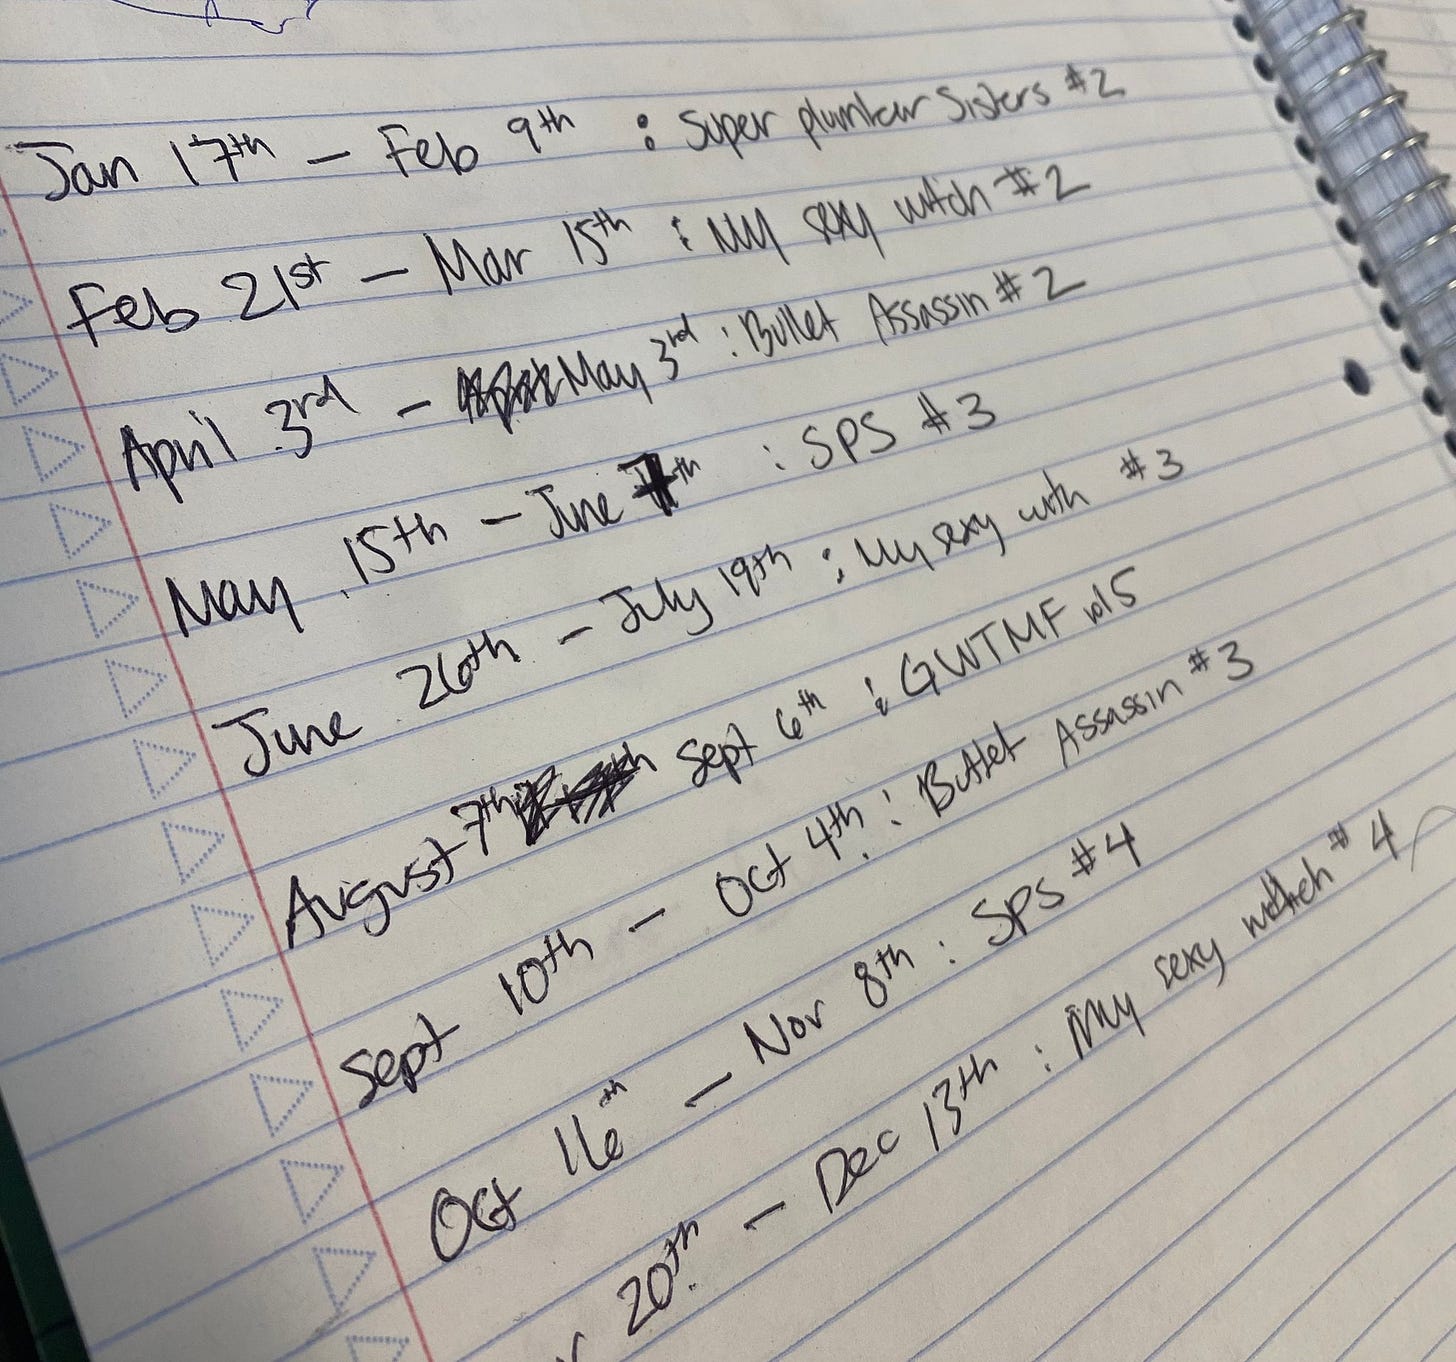 Jan 17th – Feb 9th : Super plumber Sisters #2
Feb 21st – Mar 15th : My sexy witch #2
April 3rd – May 3rd : Bullet Assassin #2
May 15th – June 7th : SPS #3
June 26th – July 19th : My sexy witch #3
August 7th Sept 6th : GWTMF vol 5
Sept 10th – Oct 4th : Bullet Assassin #3
Oct 16th – Nov 8th : SPS #4
20th – Dec 13th : My sexy witch #4